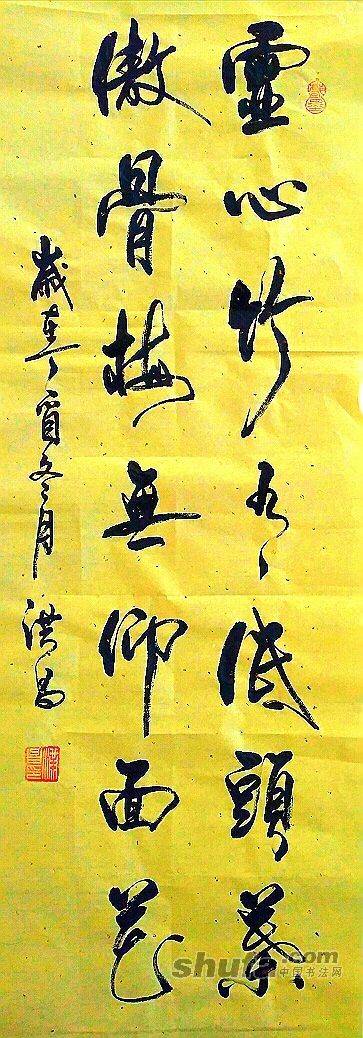 虛心竹有低頭葉
傲骨梅無仰面花
歲在丁酉冬月 洪昌
shufa.com
中国书法网